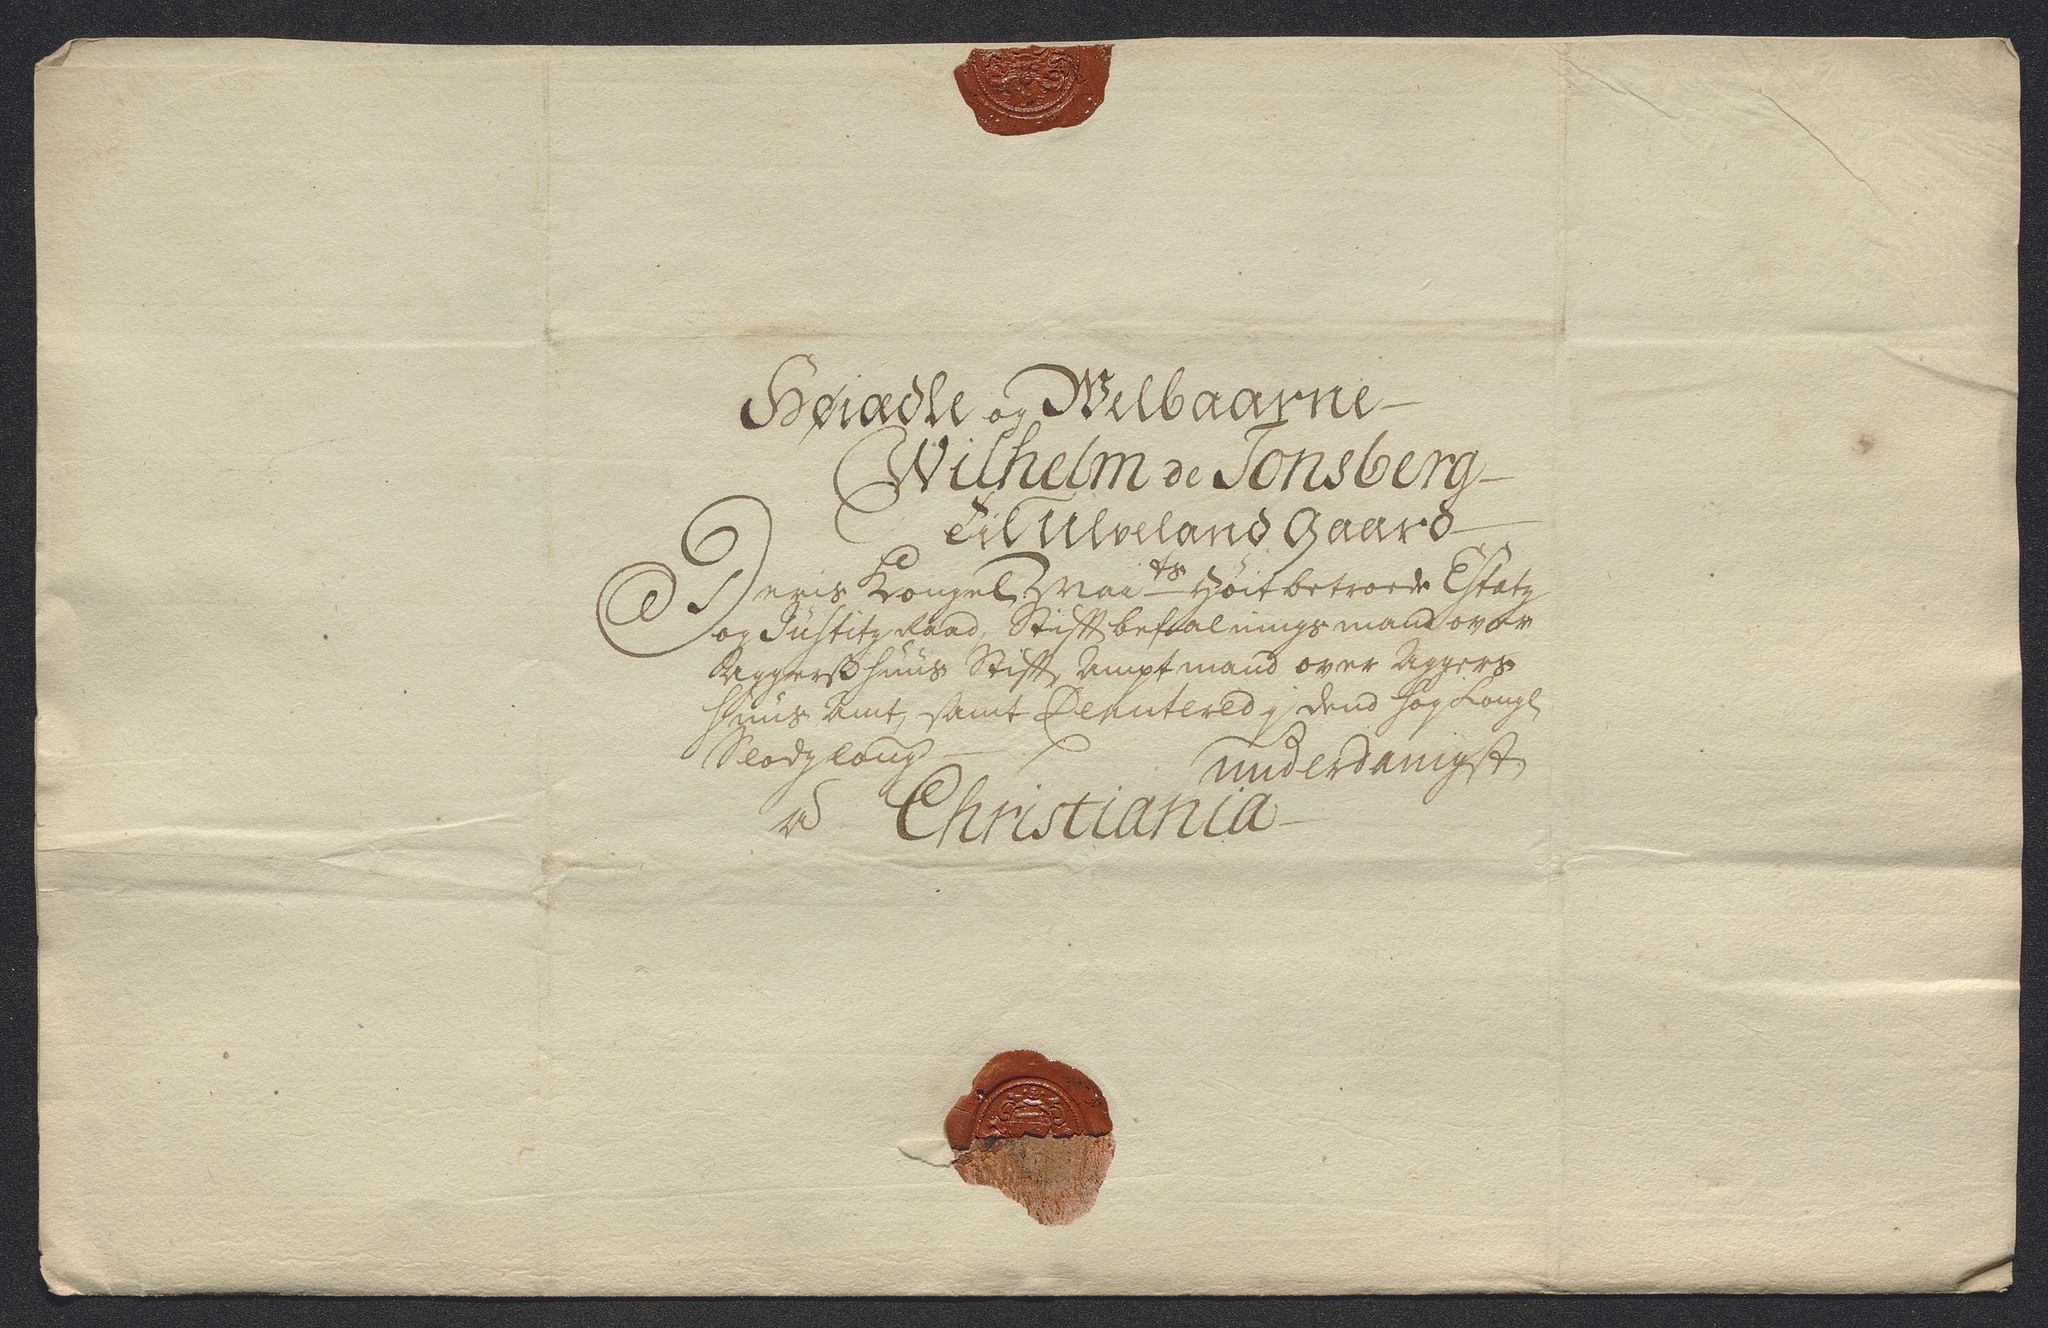 Høiædle og Welbaarne
Wilhelm de Tonsberg
Til Ulveland Gaard
Deris Kongel Mai ts Høit betroede Estatz
og Justitz Raad, Stiftbefalningsmand over
Aggerßhuus Stift, Amptmand over Aggers
Huus Amt, samt Deputered j dend høy Kongl
Slodzloug underdanigst
a Christiania